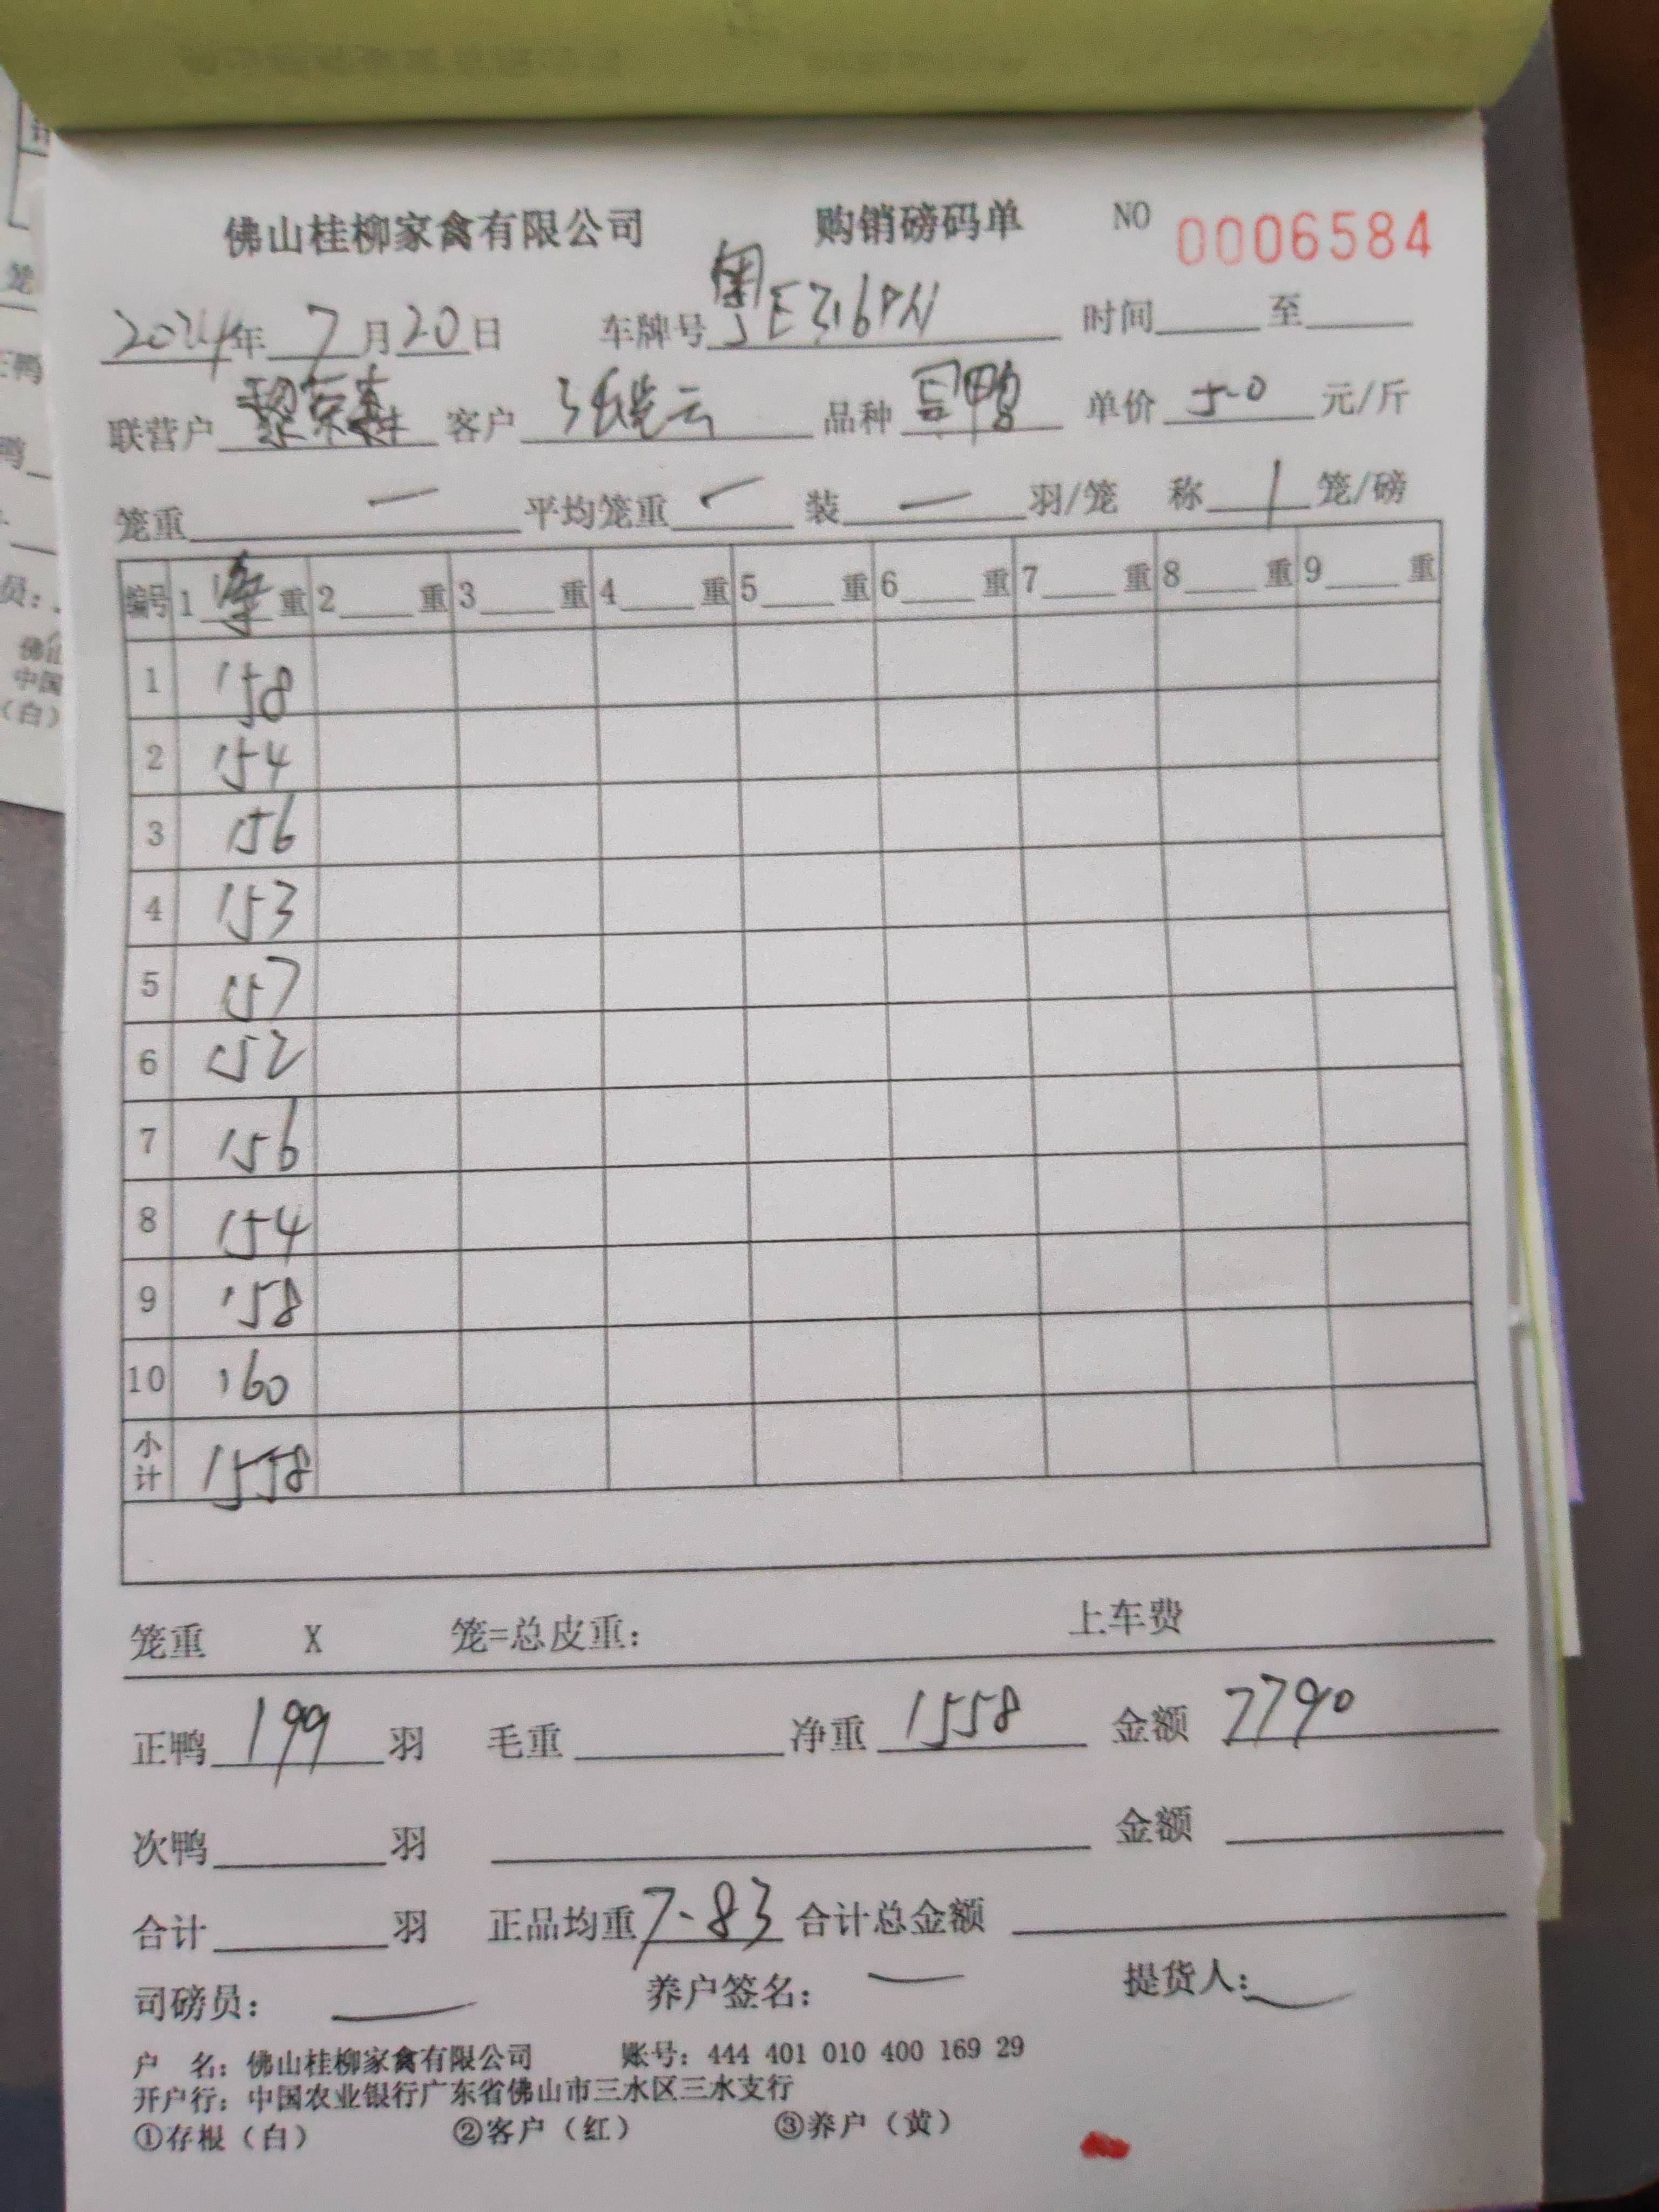 佛山桂柳家禽有限公司 购销磅码单 NO 0006584
2024年 7月20日 车牌号 粤E316PN 时间 至
联营户 客户 张 云 品种 鸭 单价 5-0 元/斤
笼重 一 平均笼重 一 装 一 羽/笼 称 1 笼/磅
编号 1 重 2 重 3 重 4 重 5 重 6 重 7 重 8 重 9 重
1 158
2 154
3 156
4 153
5 157
6 152
7 156
8 154
9 158
10 160
小计 1558
笼重 X 笼=总皮重： 上车费
正鸭 199 羽 毛重 净重 1558 金额 7790
次鸭 羽 金额
合计 羽 正品均重 7-83 合计总金额
司磅员： 养户签名： 提货人：
户 名：佛山桂柳家禽有限公司 账号：444 401 010 400 169 29
开户行：中国农业银行广东省佛山市三水区三水支行
①存根（白） ②客户（红） ③养户（黄）